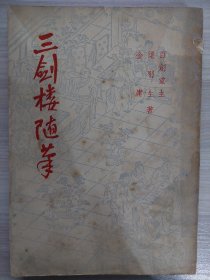 三劍楼随筆
百劍堂主
梁羽生 著
金庸